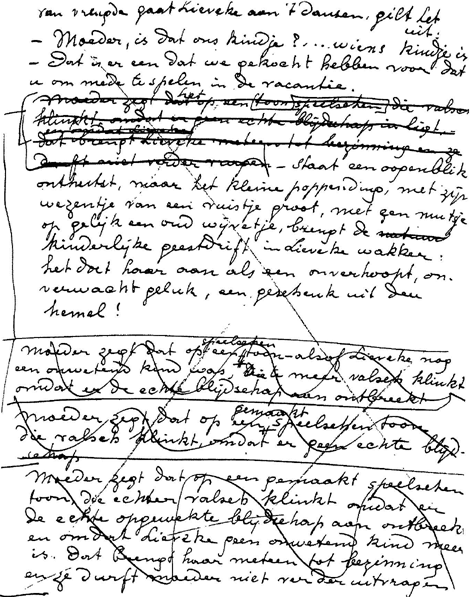 van vreugde gaat Lieveke aan 't dansen, gilt het uit:
- Moeder, is dat ons kindje?.... wiens kindje is
- Dat is er een dat we gekocht hebben voor dat
u om mede te spelen in de vacantie.
Moeder zegt dat op het een (toon) speelschen, die valsch
klinkt omdat er geen echte blijdschap in ligt
en omdat Lieveke
dat brengt Lieveke meteen tot bezinning en ze
durft niet verder vragen - staat een oogenblik
onthutst, maar het kleine poppending, met zijn
wezentje van een vuistje groot, met een mutsje
op gelijk een oud wijvetje, brengt de natuur
kinderlijke geestdrift in Lieveke wakker:
het doet haar aan als een onverhoopt, on-
verwacht geluk, een geschenk uit den
hemel!
Moeder zegt dat op een speelschen toon - alsof Lieveke nog
een onwetend kind was - die te meer valsch klinkt
omdat er de echte blijdschap aan ontbreekt
Moeder zegt dat op een gemaakt speelschen toon
die valsch klinkt, omdat er geen echte blijd-
schap
Moeder zegt dat op een gemaakt speelschen
toon, die echter valsch klinkt omdat er
de echte opgewekte blijdschap aan ontbreekt
en omdat Lieveke geen onwetend kind meer
is. Dat brengt haar meteen tot bezinning
en ze durft moeder niet verder uitvragen